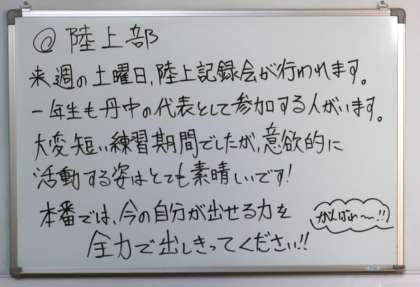 @陸上部
来週の土曜日、陸上記録会が行われます。
一年生も丹中の代表として参加する人がいます。
大変短い練習期間でしたが、意欲的に
活動する姿はとても素晴しいです!
本番では、今の自分が出せる力を
全力で出しきってください!!
がんばれ～!!